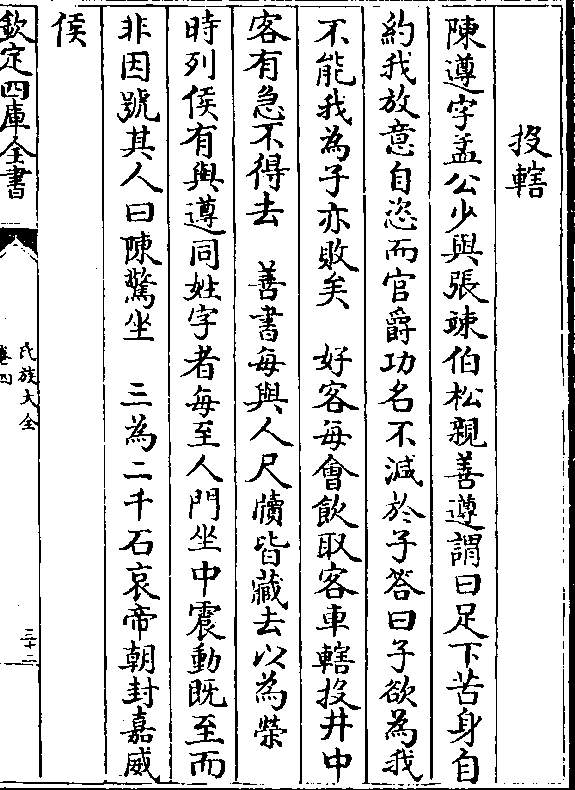 投轄
陳遵字孟公少與張竦伯松親善遵謂曰足下苦身自
約我放意自恣而官爵功名不減於子答曰子欲為我
不能我為子亦敗矣　好客每會飲取客車轄投井中
客有急不得去　善書每與人尺牘皆藏去以為榮
時列侯有與遵同姓字者每至人門坐中震動既至而
非因號其人曰陳驚坐　三為二千石哀帝朝封嘉威
侯
欽定四庫全書
氏族大全
卷四
三十二